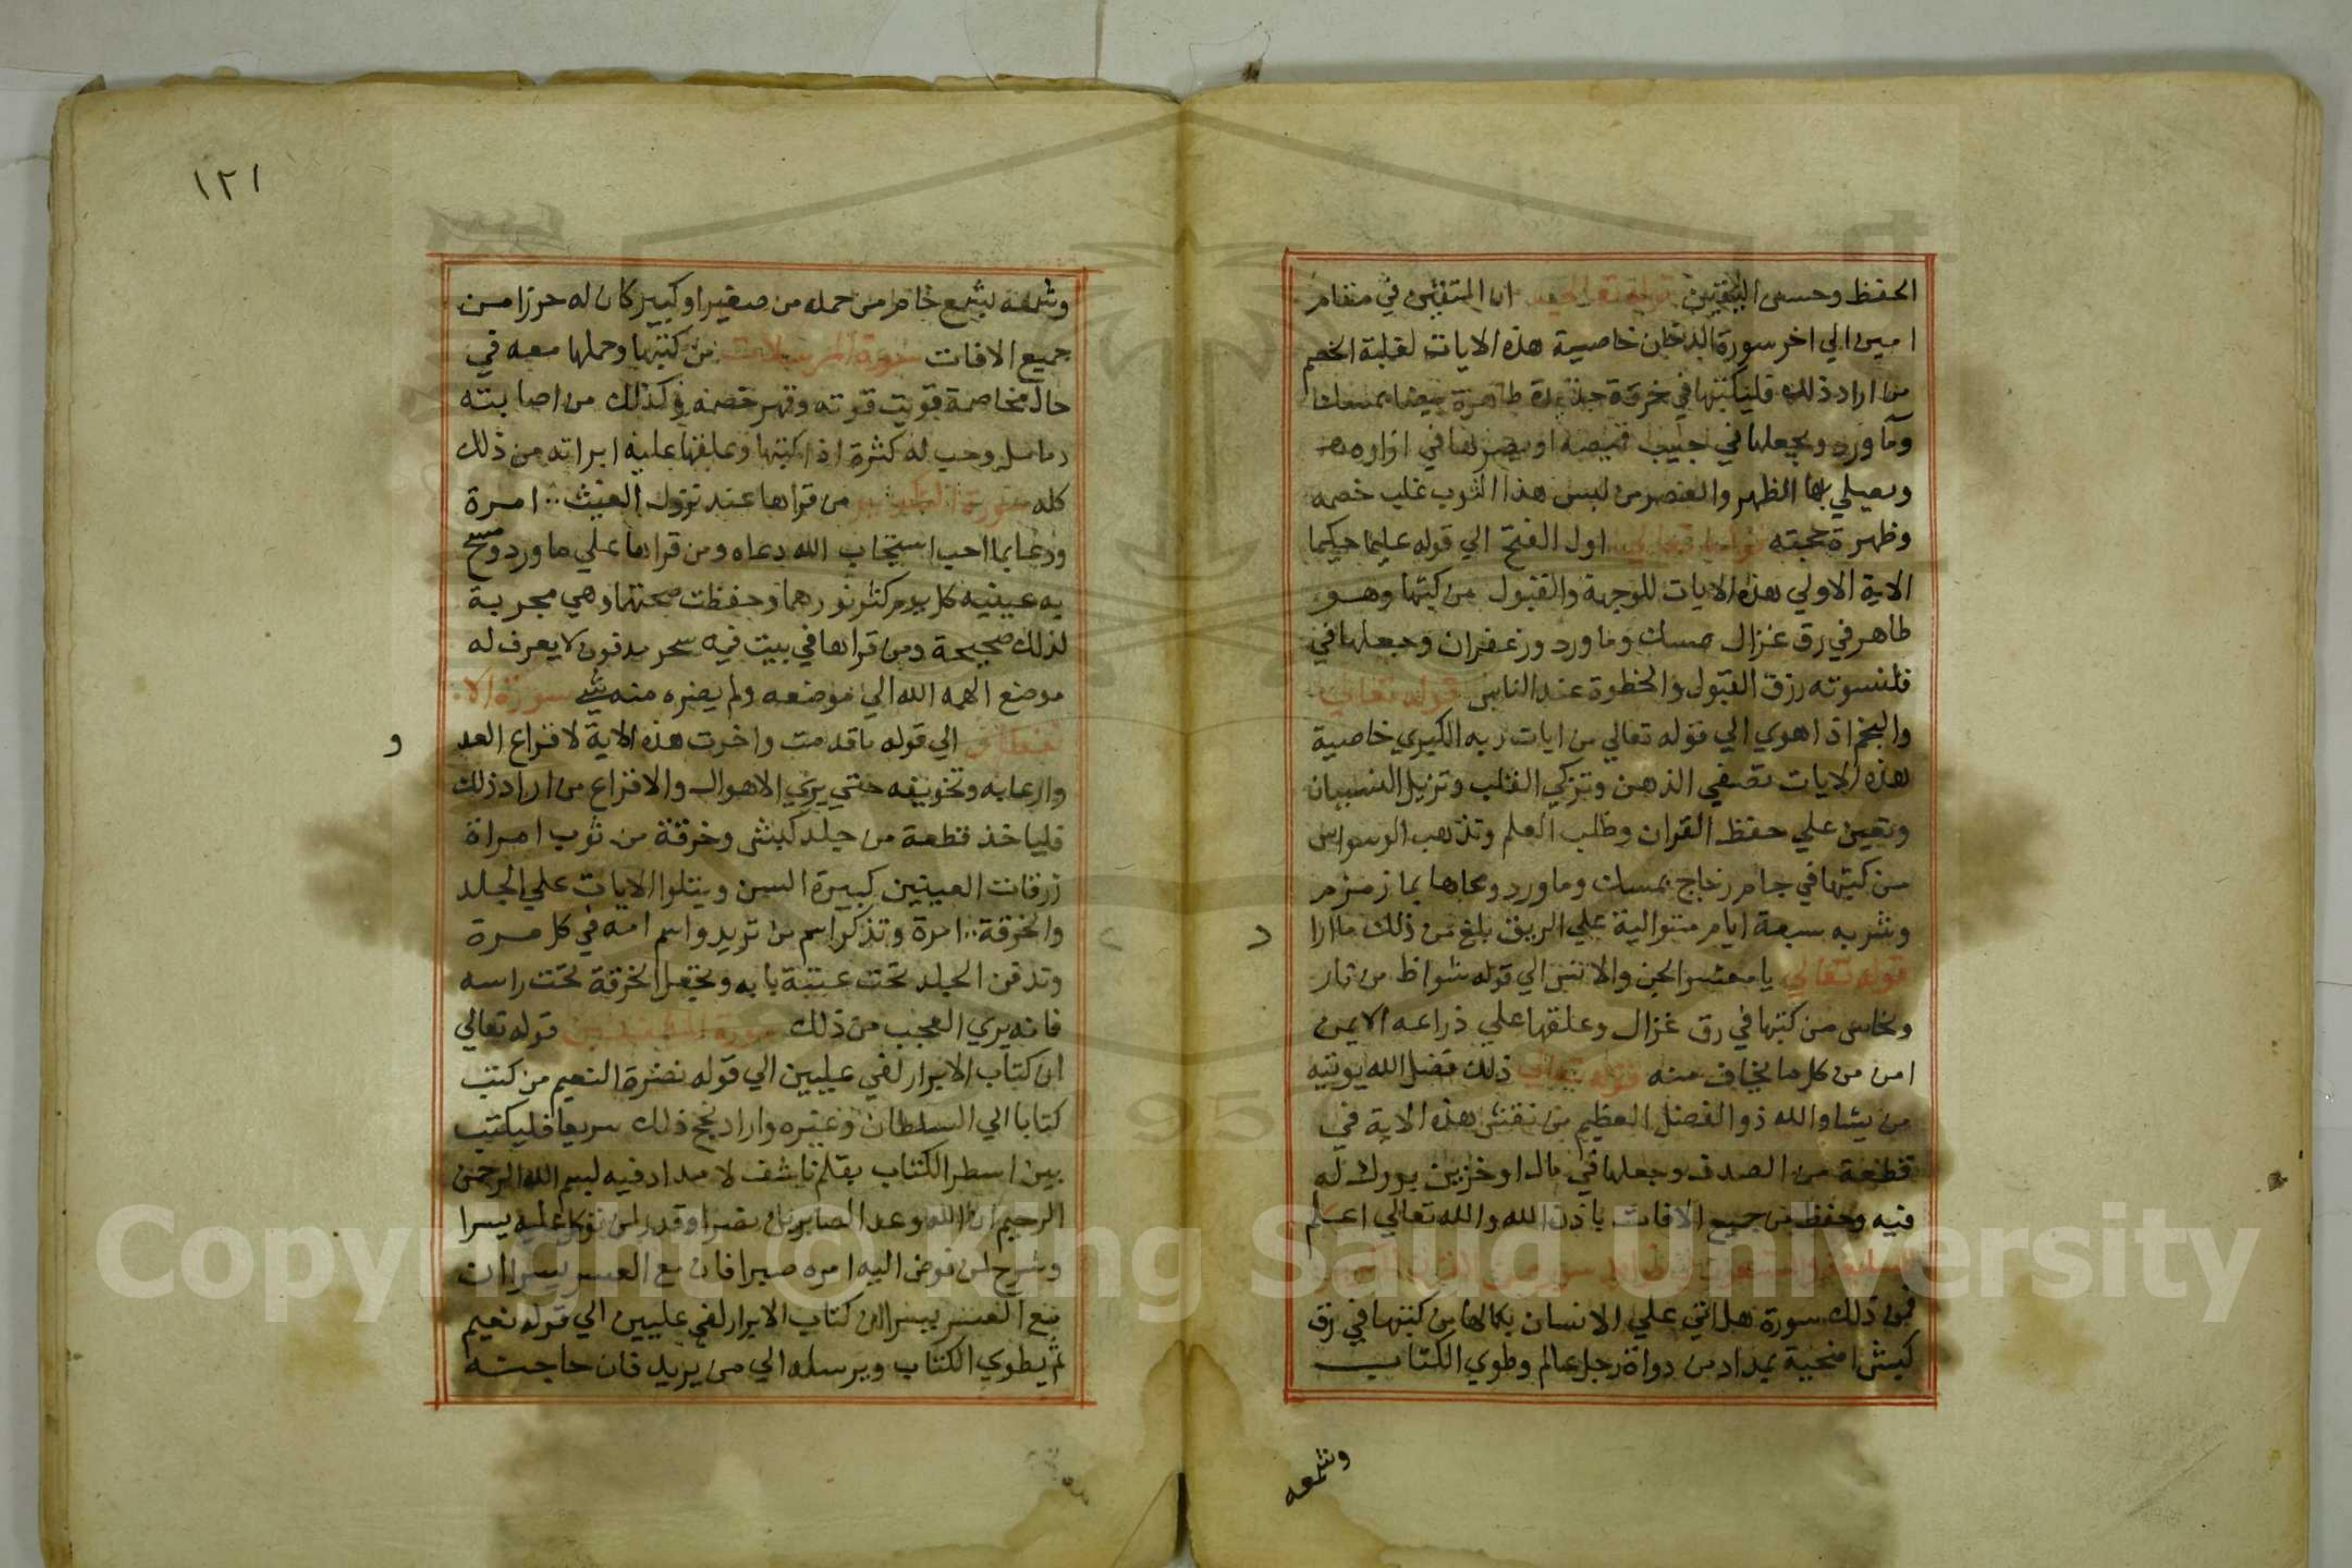 الحفظ وحسن اليقين ان المتقين في مقام
امين الي اخر سورة الدخان خاصية هذه الايات لغلبة الخصم
من اراد ذلك فليكتبها في خرقة جديدة طاهرة بيضا بمسك
وما ورد ويجعلها في جيب قميصه او يصرها في ازاره
ويصلي بها الظهر والعصر من لبس هذا الثوب غلب خصمه
وظهرة حجته قوله تعالي اول الفتح الي قوله عليما حكيما
الاية الاولي هذه الايات للوجهة والقبول من كتبها وهو
طاهر في رق غزال مسك وما ورد وزعفران وجعلها في
قلنسوته رزق القبول والحظوة عند الناس قوله تعالي
والنجم اذا هوي الي قوله تعالي من ايات ربه الكبري خاصية
هذه الايات تصفي الذهن وتزكي القلب وتزيل النسيان
وتعين علي حفظ القران وطلب العلم وتذهب الوسواس
من كتبها في جام زجاج بمسك وما ورد ومحاها بما زمزم
وشربه سبعة ايام متوالية علي الريق بلغ من ذلك ما ارا
د
قوله تعالي يا معشر الجن والانس الي قوله شواظ من نار
ونحاس من كتبها في رق غزال وعلقها علي ذراعه الايمن
امن من كل ما يخاف منه قوله تعالي ذلك فضل الله يوتيه
من يشا والله ذو الفضل العظيم من نقش هذه الاية في
قطعة من الصدف وجعلها في مال او خزين بورك له
فيه وحفظ من جميع الافات باذن الله والله تعالي اعلم
فمن ذلك سورة هل اتي علي الانسان بكمالها من كتبها في رق
كبش اضحية بمداد من دواة رجل عالم وطوي الكتاب
وشمعه
١٢١
وشمعه بشمع خام من حمله من صغير او كبير كان له حرزا من
جميع الافات سورة المرسلات من كتبها وحملها معه في
حال مخاصمة قويت قوته وقهر خصمه وكذلك من اصابته
دمامل وحب له كثرة اذا كتبها وعلقها عليه ابراته من ذلك
كله سورة من قراها عند نزول الغيث امرة
ودعا بما احب استجاب الله دعاه ومن قراها علي ما ورد ومسح
به عينيه كل يوم كثر نورهما وحفظت صحتها وهي مجربة
لذلك صحيحة ومن قراها في بيت فيه سحر مدفون لا يعرف له
موضع الهمه الله الي موضعه ولم يضره منه شي سورة الا
نفطار الي قوله ما قدمت واخرت هذه الاية لافزاع العد
و
وارعابه وتخويفه حتي يري الاهوال والافزاع من اراد ذلك
فلياخذ قطعة من جلد كبش وخرقة من ثوب امراة
زرقات العينين كبيرة السن ويتلوا الايات علي الجلد
والخرقة امرة وتذكر اسم من تريد واسم امه في كل مرة
وتدفن الجلد تحت عتبة بابه وتجعل الخرقة تحت راسه
فانه يري العجب من ذلك سورة المطففين قوله تعالي
ان كتاب الابرار لفي عليين الي قوله نضرة النعيم من كتب
كتابا الي السلطان وغيره واراد نجح ذلك سريعا فليكتب
بين اسطر الكتاب بقلم ناشف لا مداد فيه بسم الله الرحمن
الرحيم ان الله وعد الصابرين نصرا وقدر لمن توكل عليه يسرا
وشرح لمن فوض اليه امره صبرا فان مع العسر يسرا ان
مع العسر يسرا ان كتاب الابرار لفي عليين الي قوله نعيم
ثم يطوي الكتاب ويرسله الي من يريد فان حاجته
Copyright © King Saud University